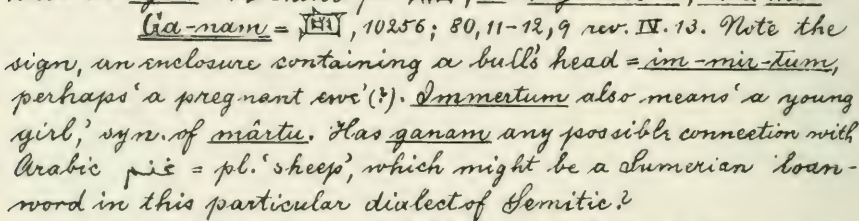 Ga-nam = , 10256; 80, 11-12, 9 rev. IV. 13. Note the
sign, an enclosure containing a bull's head = im-mir-tum,
perhaps 'a pregnant ewe' (?). Immertum also means 'a young
girl,' syn. of mârtu. Has ganam any possible connection with
Arabic غنم = pl. 'sheep', which might be a Sumerian loan-
word in this particular dialect of Semitic?